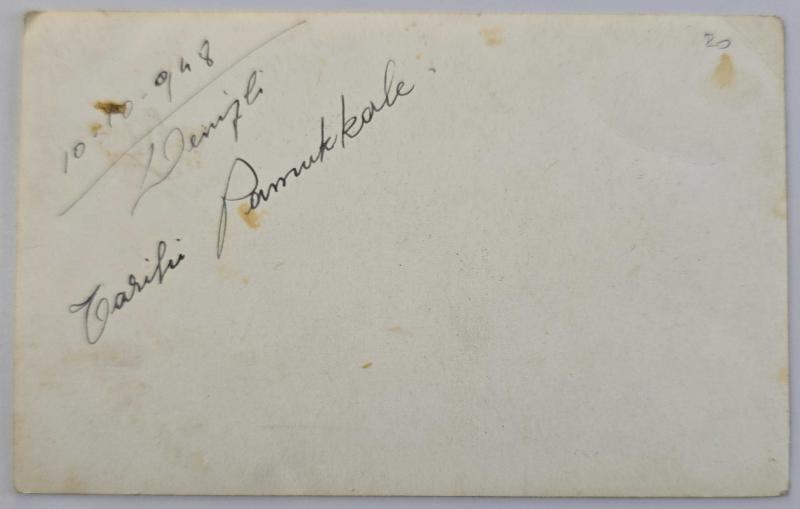 20
10-10-948
Denizli
Tarihi Pamukkale.